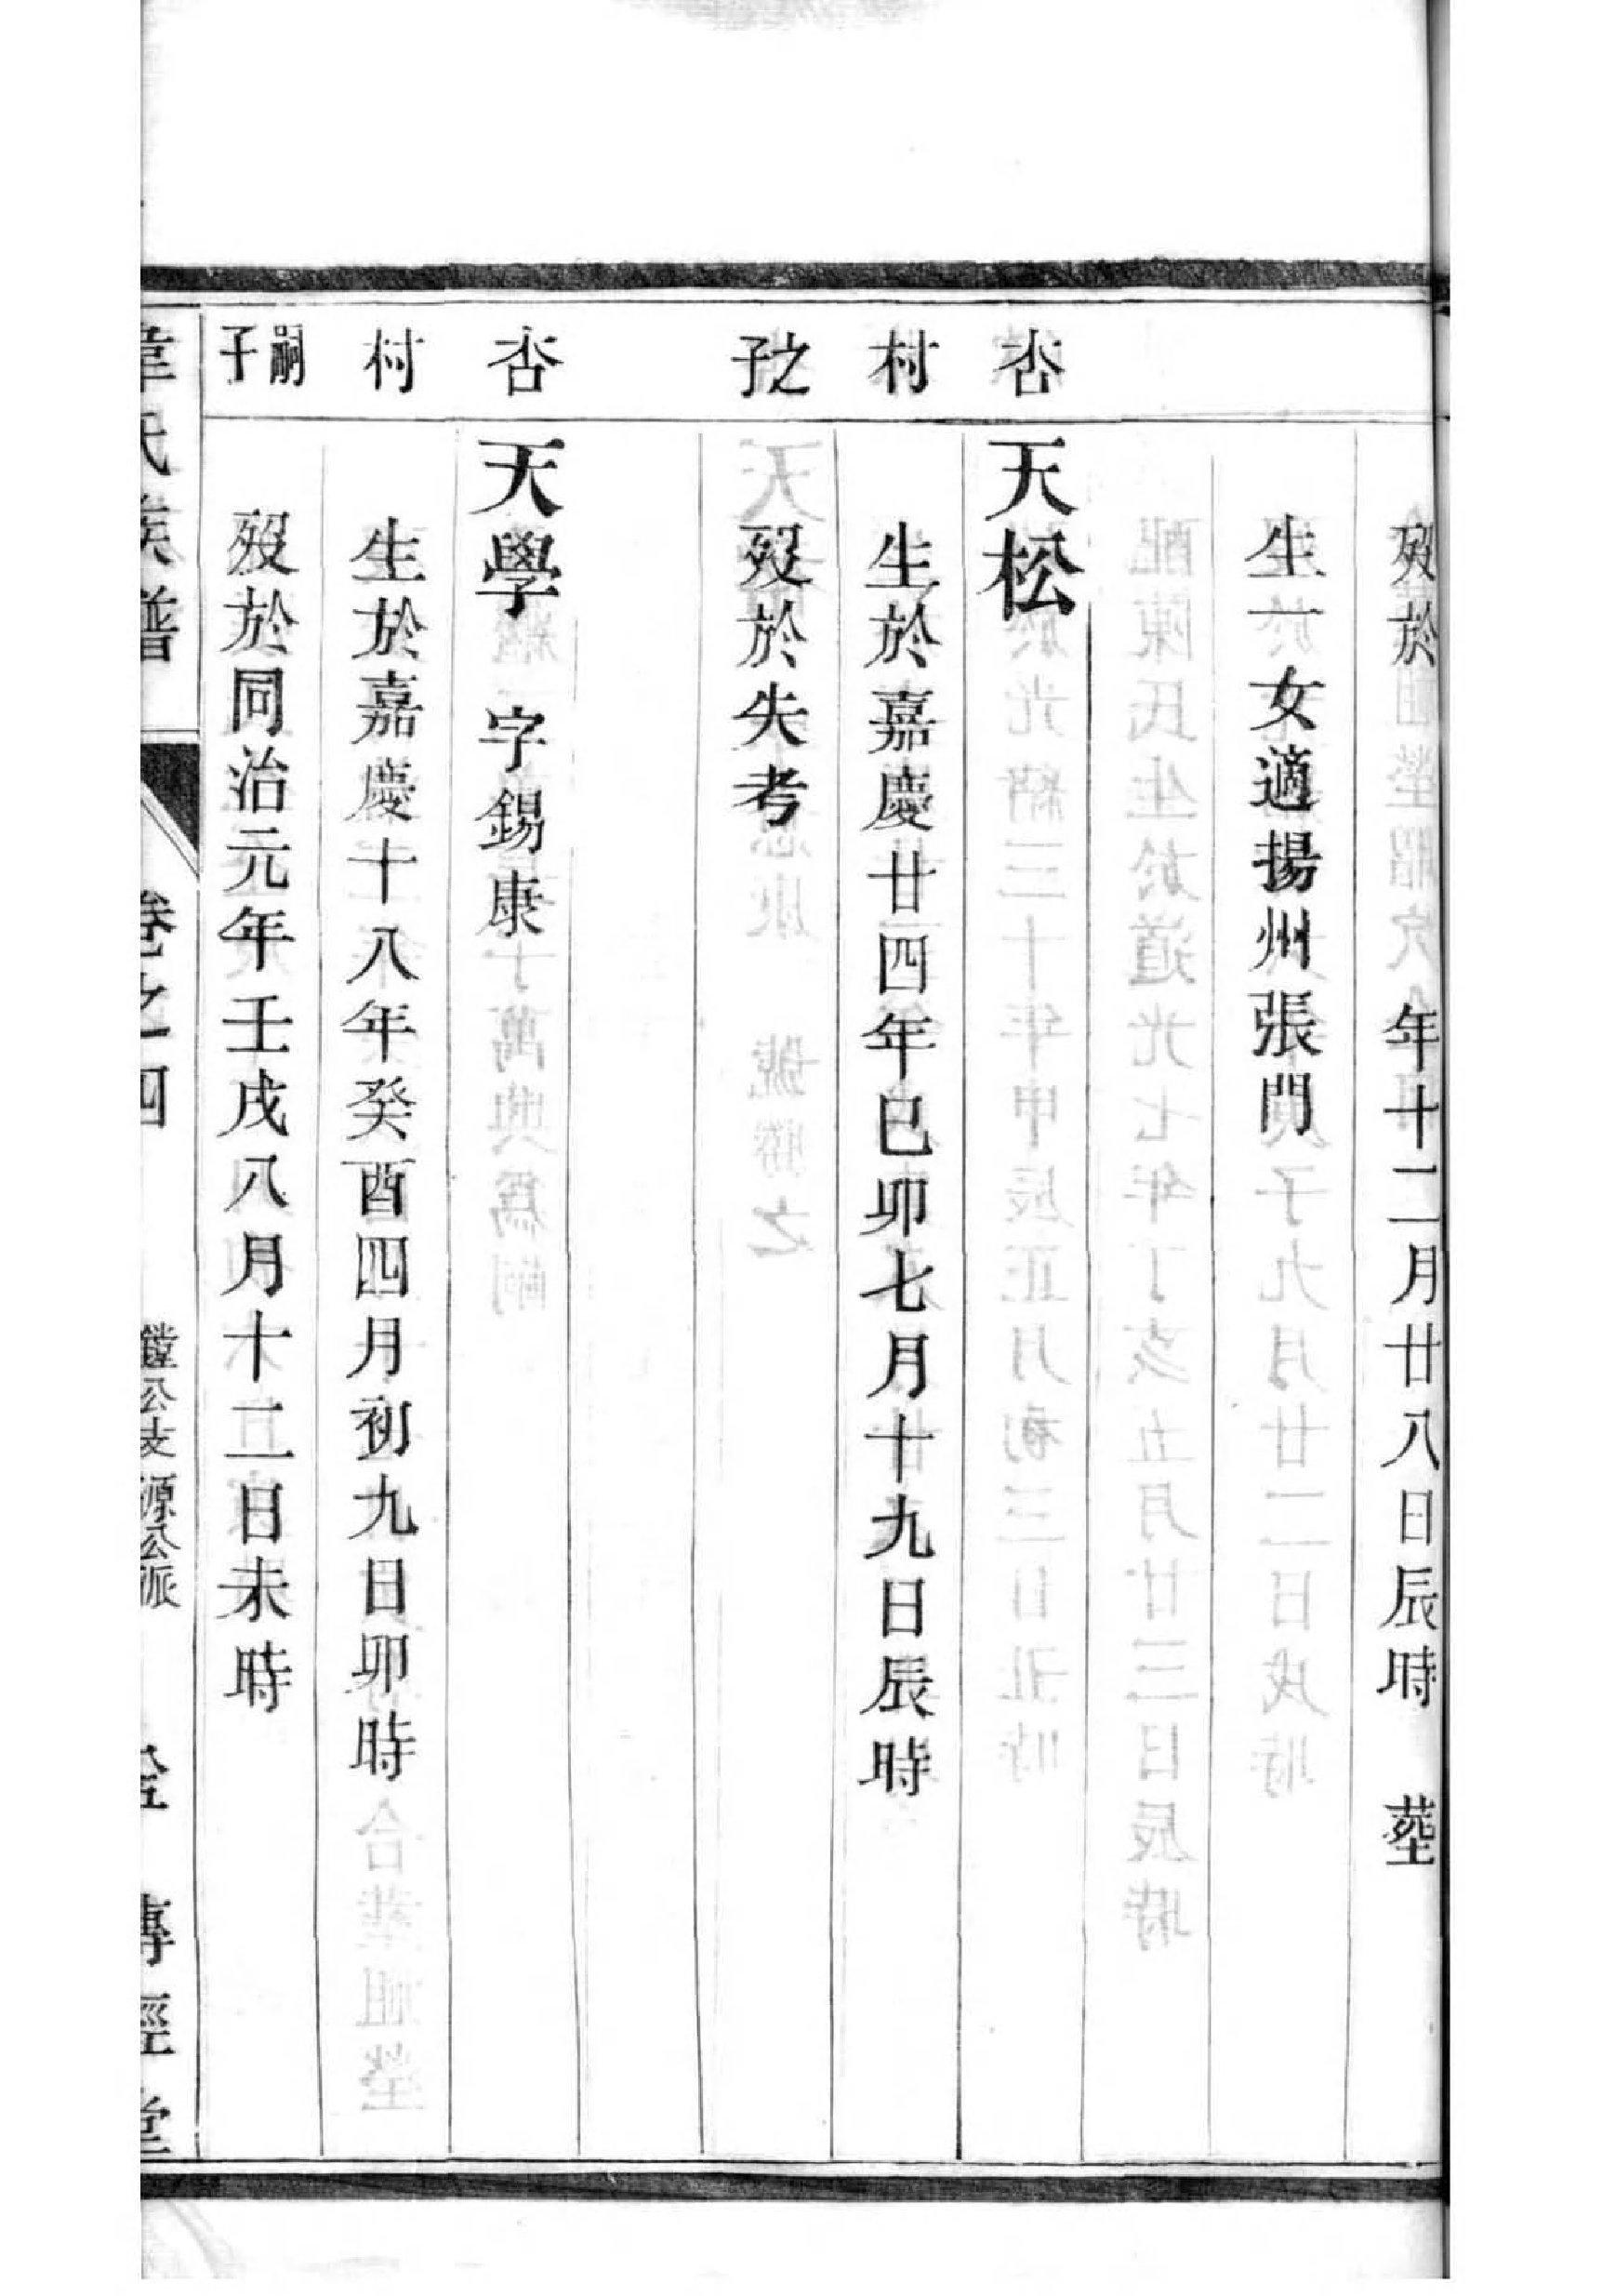 歿於　　年十二月廿八日辰時　葬
生一　女適揚州張門
杏　天松
村　生於嘉慶廿四年己卯七月十九日辰時
之子　歿於失考
杏　天學　字錫康
村　生於嘉慶十八年癸酉四月初九日卯時
嗣子　歿於同治元年壬戌八月十二日未時
韋氏族譜　卷之四　鏜公支源公派　傳經堂